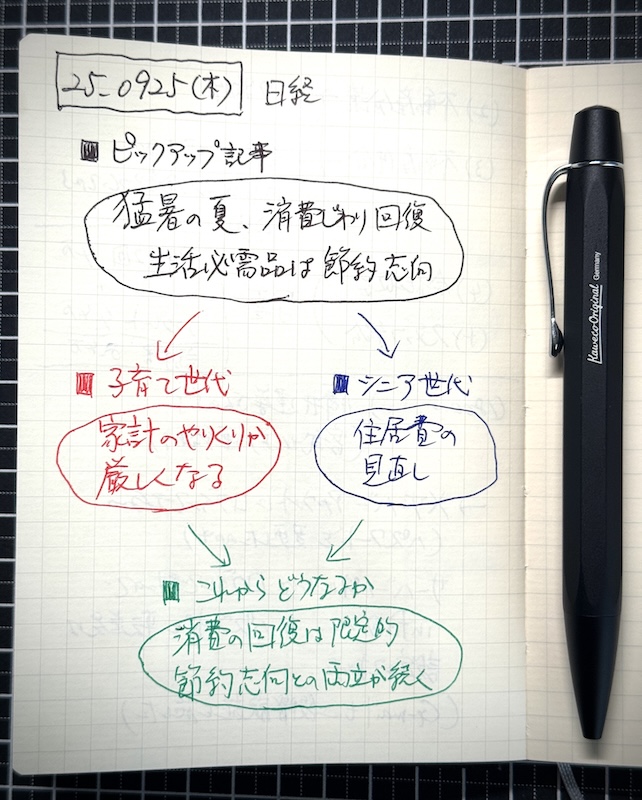 25_0925(木) 日経
■ ピックアップ記事
猛暑の夏、消費じわり回復
生活必需品は節約志向
■ 子育て世代
家計のやりくりが
厳しくなる
■ シニア世代
住居費の
見直し
■ これからどうなるか
消費の回復は限定的
節約志向との両立が続く
Kaweco Original Germany